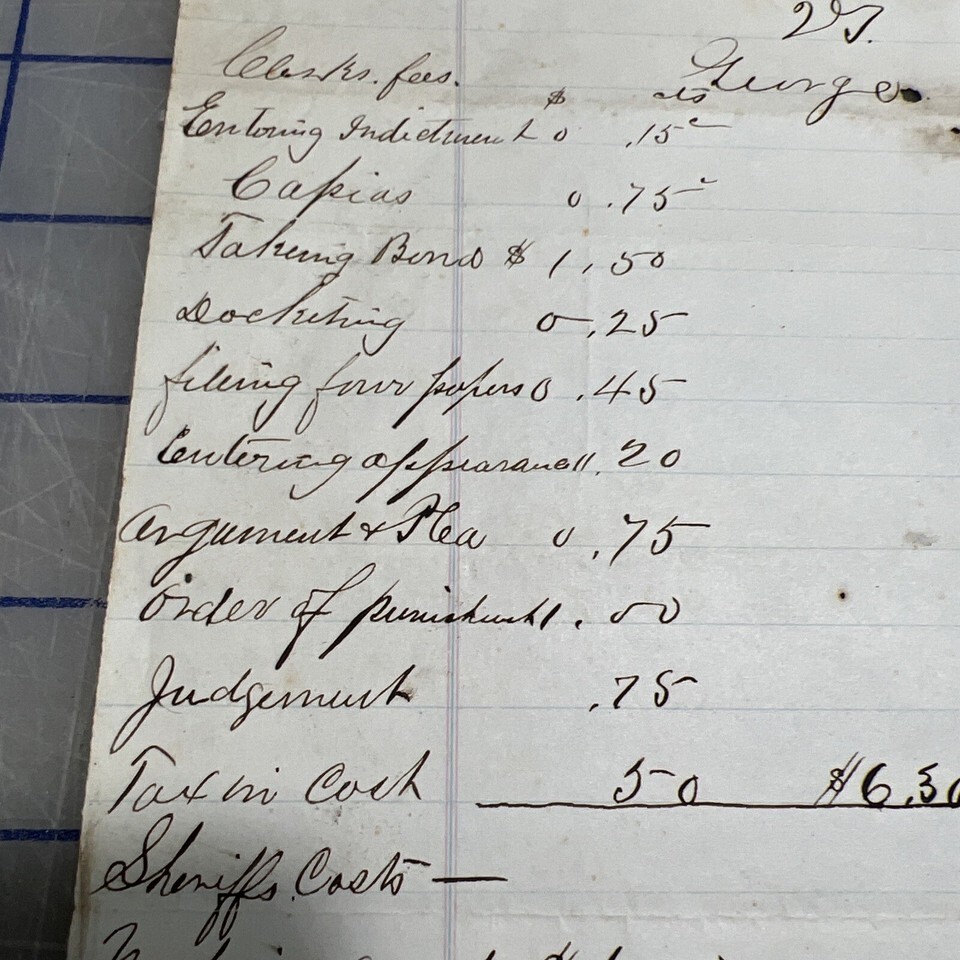 vs.
Clerks. fees. George
$ cts
Entering Indictment 0 .15
Capias 0 .75
Taking Bond $ 1.50
Docketing 0 .25
filing four papers 0 .45
Entering appearance .20
Argument & Plea 0 .75
Order of punishmt 1.00
Judgement .75
Tax in Cost 50 $6.30
Sheriffs. Costs —